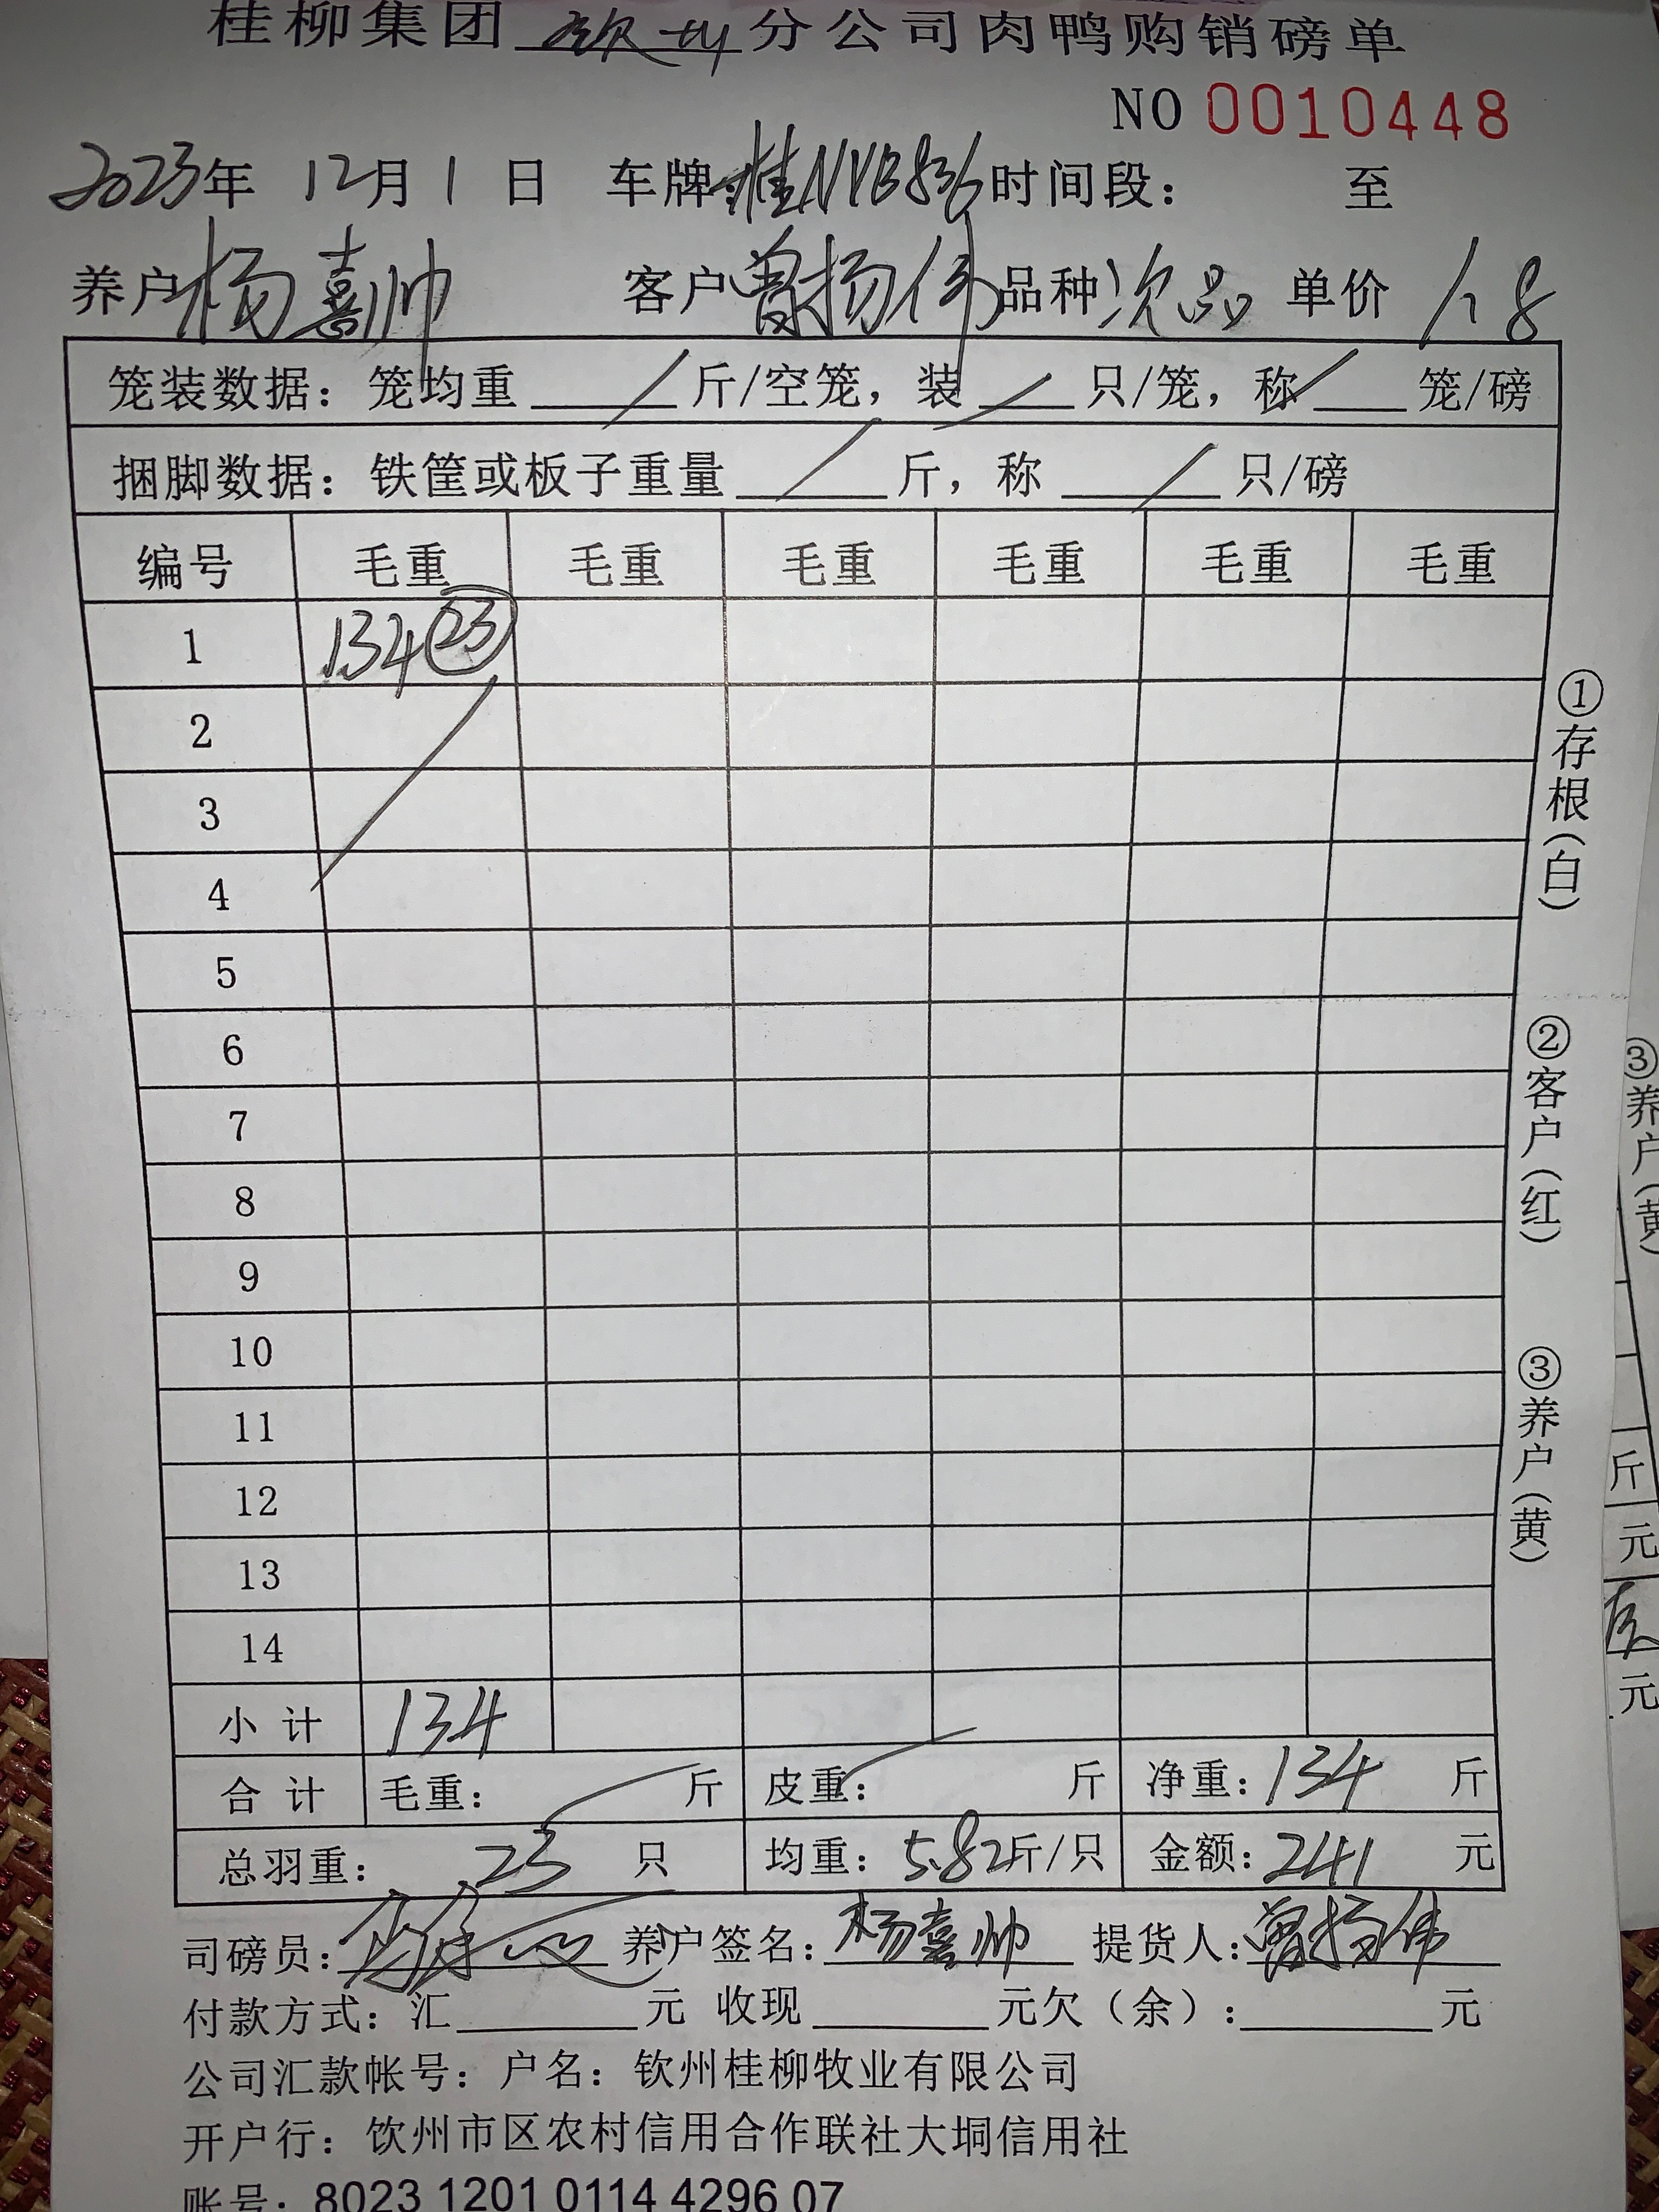 桂柳集团 钦州 分公司肉鸭购销磅单
NO 0010448
2023年 12月1日 车牌:桂NVB836 时间段： 至
养户 杨喜帅 客户 曾扬伟 品种 次品 单价 1.8
笼装数据：笼均重 / 斤/空笼，装 / 只/笼，称 / 笼/磅
捆脚数据：铁筐或板子重量 / 斤，称 / 只/磅
编号 毛重 毛重 毛重 毛重 毛重 毛重
1 134 23
2
3
4
5
6
7
8
9
10
11
12
13
14
小计 134
合计 毛重： 斤 皮重： 斤 净重：134 斤
总羽重： 23 只 均重：5.82斤/只 金额：241 元
司磅员： 养户签名：杨喜帅 提货人：曾扬伟
付款方式：汇 元 收现 元欠（余）： 元
公司汇款帐号：户名：钦州桂柳牧业有限公司
开户行：饮州市区农村信用合作联社大垌信用社
账号：8023 1201 0114 4296 07
①存根（白）
②客户（红）
③养户（黄）
③养户（黄）
斤
元
元